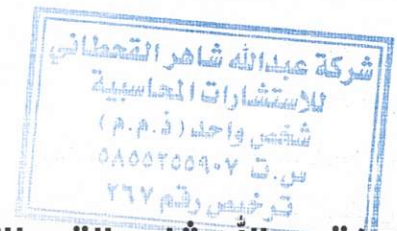 شركة عبدالله شاهر القحطاني
للإستشارات المحاسبية
شخص واحد ( ذ.م.م )
س.ت ٥٨٥٥٢٥٥٩٠٧
ترخيص رقم ٢٦٧